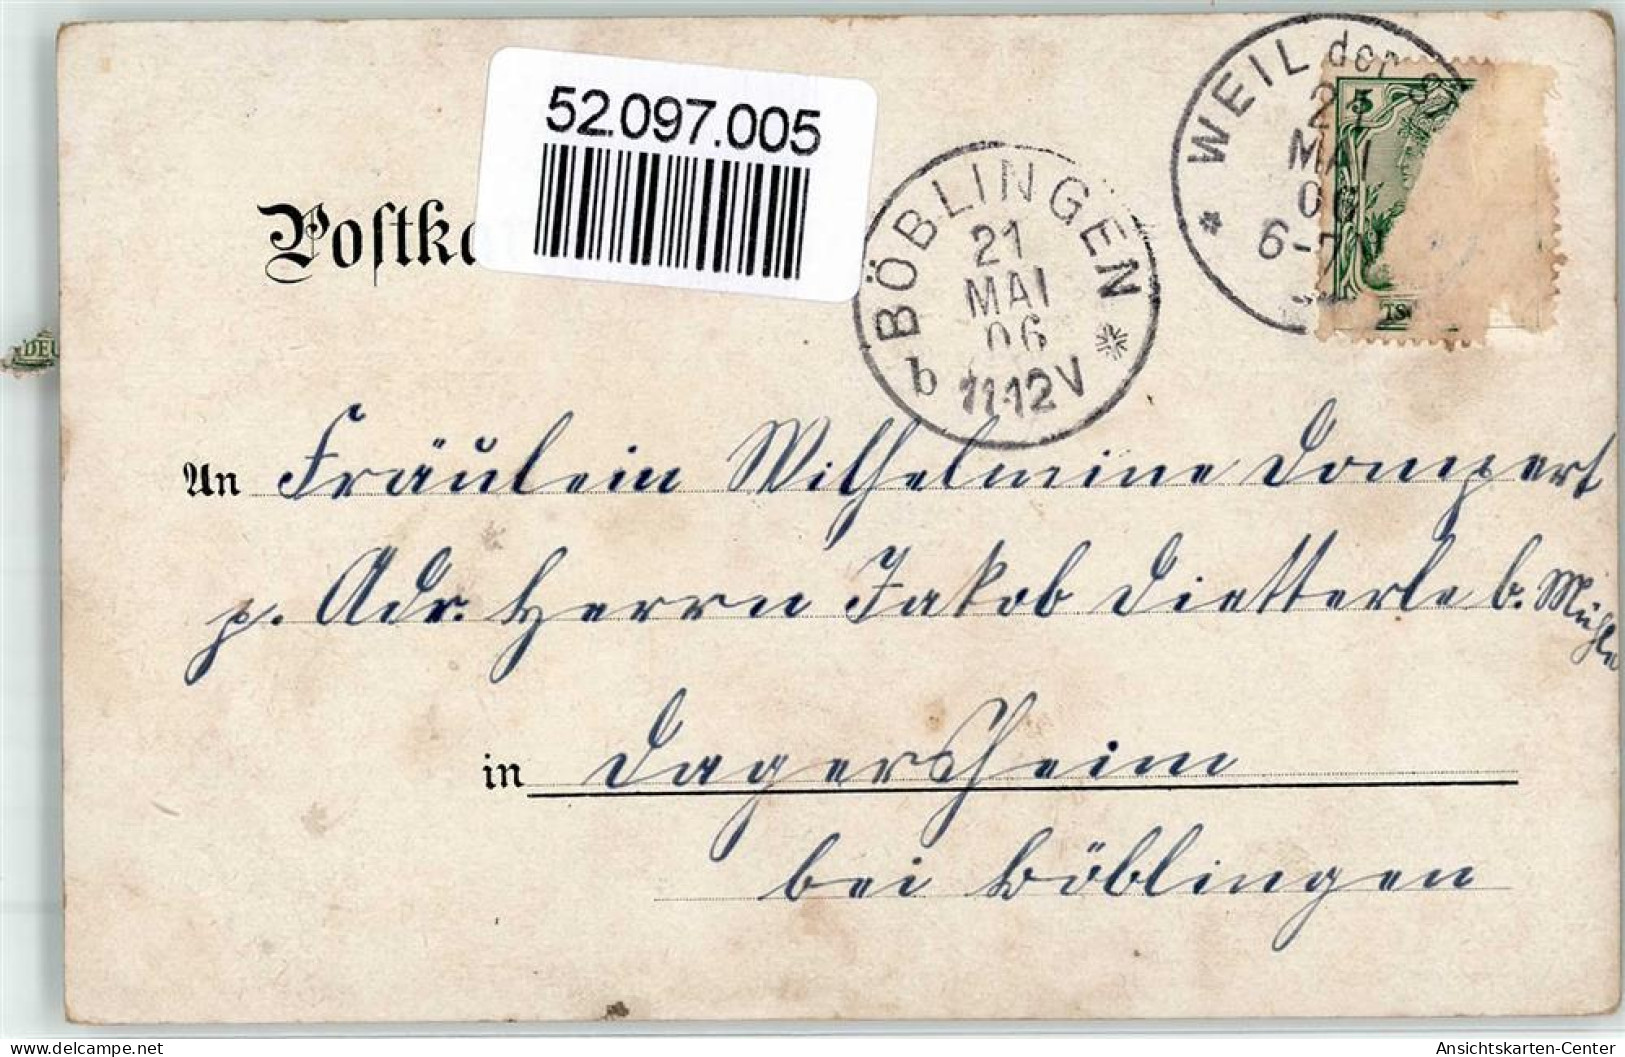 52.097.005
Postka
BÖBLINGEN
21
MAI
06
11-12V
b
WEIL der S
21
MAI
06
6-7
5
DEU
TSC
An Fräulein Wilhelmine Dompert
p. Adr. Herrn Jakob Dietterle b. Mühle
in Dagersheim
bei Böblingen
Ansichtskarten-Center
www.delcampe.net